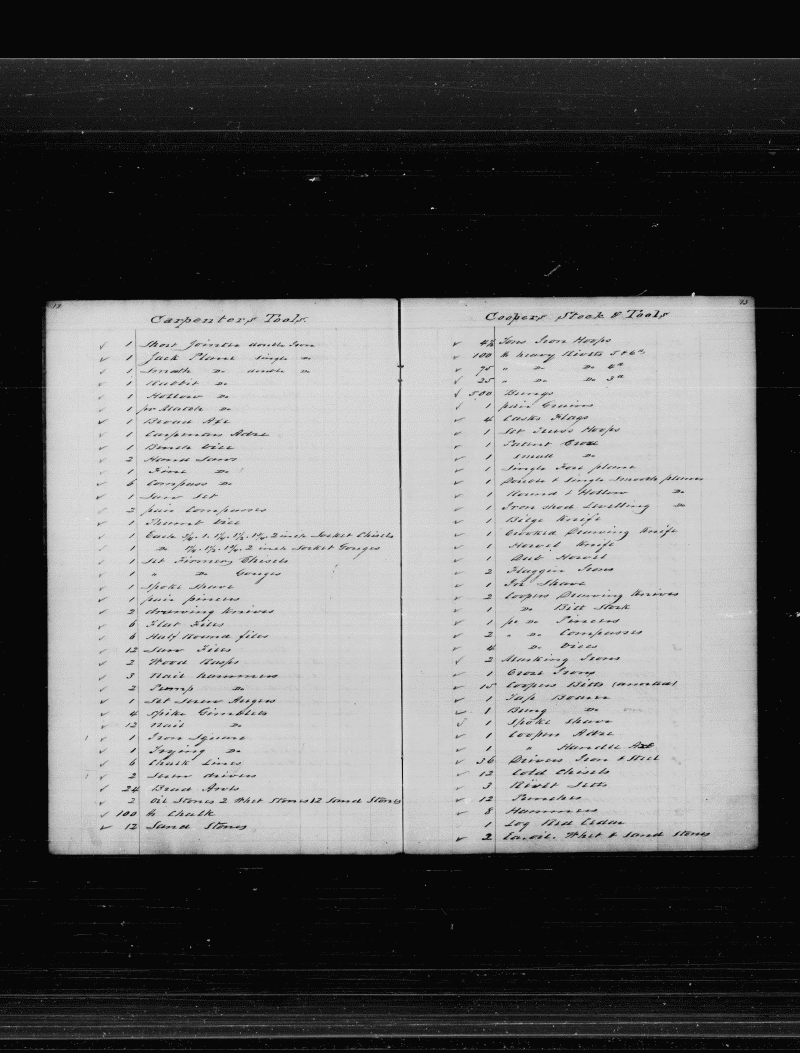 12
Carpenters Tools
✓ 1 Short Jointer double Iron
✓ 1 Jack Plane single Do
✓ 1 Smooth Do double Do
✓ 1 Rabbit Do
✓ 1 Hollow Do
✓ 1 pr Match Do
✓ 1 Broad Axe
✓ 1 Carpenters Adze
✓ 1 Bench Vice
✓ 2 Hand Saws
✓ 1 Fine Do
✓ 6 Compass Do
✓ 1 Saw Set
✓ 2 pair Compasses
✓ 1 Thumb Vice
✓ 1 Each 1. 2 inch Socket Chisels
✓ 1 Do 2 inch Socket Gouges
✓ 1 Set Firmer Chisels
✓ 1 " Do Gouges
✓ 1 Spoke Shave
✓ 1 pair pincers
✓ 2 drawing knives
✓ 6 Flat Files
✓ 6 Half Round files
✓ 12 Saw Files
✓ 2 Wood Rasps
✓ 3 Nail hammers
✓ 2 Pump Do
✓ 1 Set Screw Augers
✓ 4 Spike Gimblets
✓ 12 Nail Do
✓ 1 Iron Square
✓ 1 Trying Do
✓ 6 Chalk Lines
✓ 2 Screw drivers
✓ 24 Brad Awls
✓ 2 Oil Stones 2 Whet Stones 12 Sand Stones
✓ 100 lb Chalk
✓ 12 Sand Stones
13
Coopers Stock & Tools
✓ 4½ Tons Iron Hoops
✓ 100 lb heavy Rivets 5 & 6
✓ 75 " Do Do 4
✓ 25 " Do Do 3
✓ 500 Bungs
✓ 1 pair
✓ 4 Casks Flags
✓ 1 Set Truss Hoops
✓ 1 Patent Croze
✓ 1 Small Do
✓ 1 Single Fore plane
✓ 1 Double & Single Smooth planes
✓ 1 Round & Hollow Do
✓ 1 Iron Shod Levelling Do
✓ 1 Bilge Knife
✓ 1 Crooked Drawing Knife
✓ 1 Howel Knife
✓ 1 Howel
✓ 2 Flaggin Irons
✓ 1 In Shave
✓ 2 Coopers Drawing Knives
✓ 1 Do Bitt Stock
✓ 1 pr Do Pincers
✓ 2 " Do Compasses
✓ 4 Do Vices
✓ 2 Marking Irons
✓ 1 Croze Irons
✓ 15 Coopers Bitts (assorted)
✓ 1 Tap Borer
✓ 1 Bung Do
✓ 1 Spoke Shave
✓ 1 Coopers Adze
✓ 1 " Handle Axe
✓ 36 Drivers Iron & Steel
✓ 12 Cold Chisels
✓ 3 Rivet Setts
✓ 12 Punches
✓ 8 Hammers
✓ 1 Log Red Cedar
✓ 2 Ea. oil. Whet & Sand Stones